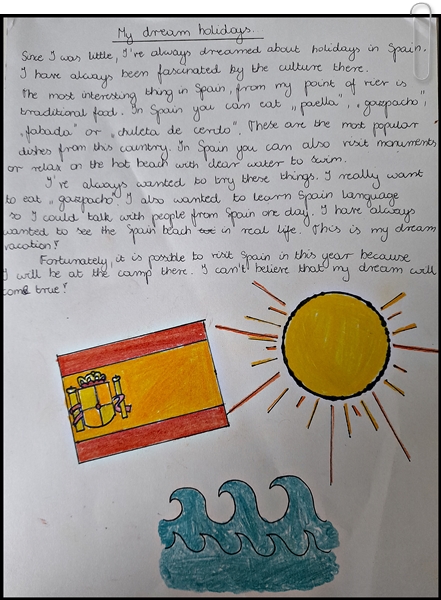 My dream holidays.
Since I was little, I've always dreamed about holidays in Spain.
I have always been fascinated by the culture there.
The most interesting thing in Spain, from my point of vier is
traditional food. In Spain you can eat „paella", „gazpacho",
„fabada" or „chuleta de cerdo". These are the most popular
dishes from this country. In Spain you can also visit monuments
or relax on the hot beach with clear water to swim.
I've always wanted to try these things. I really want
to eat „gazpacho". I also wanted to learn Spain language
so I could talk with people from Spain one day. I have always
wanted to see the Spain beach in real life. This is my dream
vacation!
Fortunately, it is possible to visit Spain in this year because
I will be at the camp there. I can't believe that my dream will
come true!